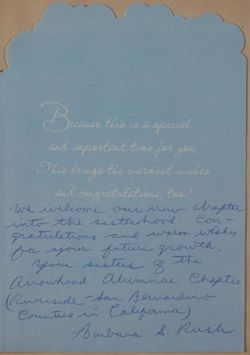 Because this is a special
and important time for you,
This brings the warmest wishes
and congratulations, too!
We welcome our new chapter
into the sisterhood. Con-
gratulations and warm wishes
for your future growth.
Your sisters of the
Arrowhead Alumnae Chapter
(Riverside-San Bernardino
Counties in California)
Barbara S. Rush